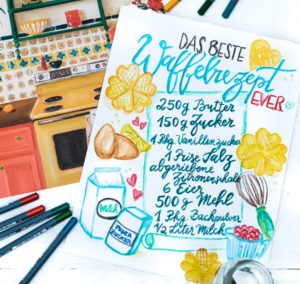 DAS BESTE
Waffelrezept
EVER
250g Butter
150g Zucker
1 Pkg. Vanillenzucker
1 Prise Salz
abgeriebene
Zitronenschale
6 Eier
500g Mehl
1 Pkg. Backpulver
1/2 Liter Milch
Milch
PUDER
ZUCKER